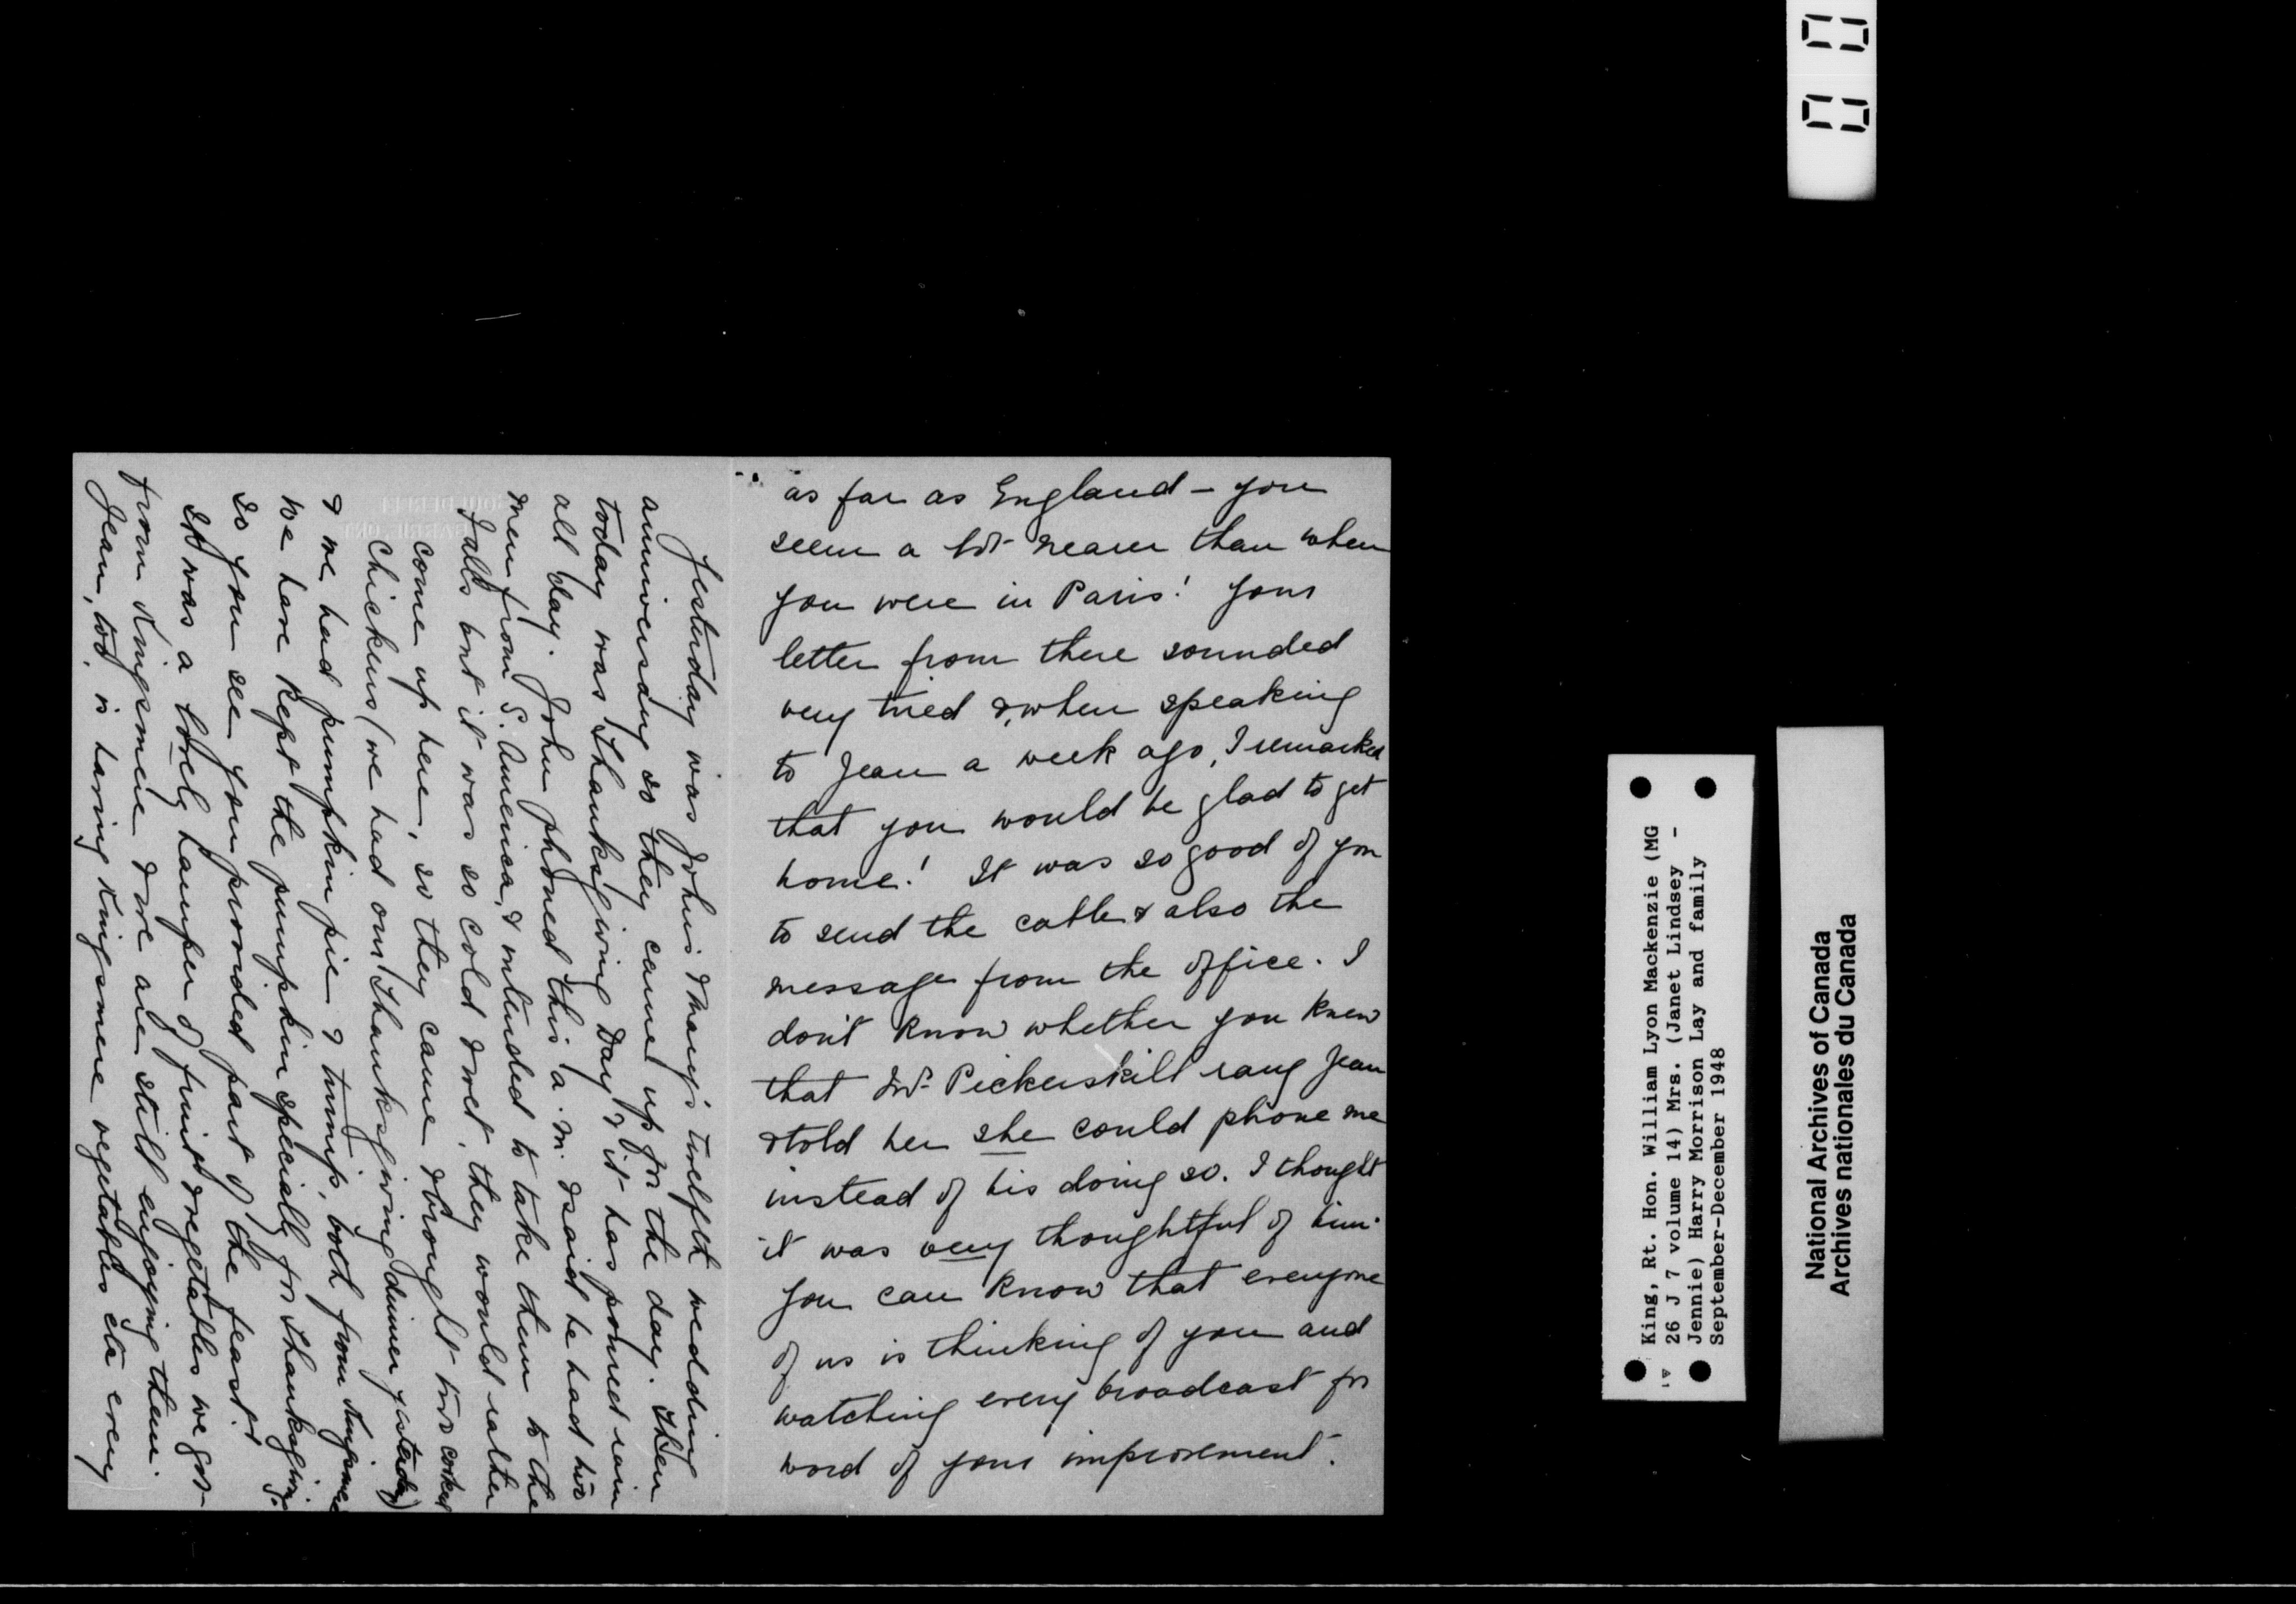 as far as England – you
seem a lot nearer than when
you were in Paris! Your
letter from there sounded
very tired &, when speaking
to Jean a week ago, I remarked
that you would be glad to get
home! It was so good of you
to send the cable & also the
message from the office. I
don't know whether you knew
that Mr. Pickerskill rang Jean
& told her she could phone me
instead of his doing so. I thought
it was very thoughtful of him.
You can know that everyone
of us is thinking of you and
watching every broadcast for
word of your improvement.
Yesterday was John's & Mary's twelfth wedding
anniversary so they came up for the day. Then
today was Thanksgiving Day & it has poured rain
all day. John phoned this a.m. & said he had two
men from S. America, & intended to take them to the
Falls but it was so cold & wet, they would rather
come up here, so they came & brought two cooked
chickens (we had our Thanksgiving dinner yesterday)
& we had pumpkin pie & turnip, both from Kingsmere
We have kept the pumpkin specially for Thanksgiving
so you see you provided part of the feast!
It was a lovely hamper of fruit & vegetables we got
from Kingsmere & we are still enjoying them.
Jean, too, is having Kingsmere vegetables etc every
King, Rt. Hon. William Lyon Mackenzie (MG
26 J 7 volume 14) Mrs. (Janet Lindsey -
Jennie) Harry Morrison Lay and family
September-December 1948
National Archives of Canada
Archives nationales du Canada